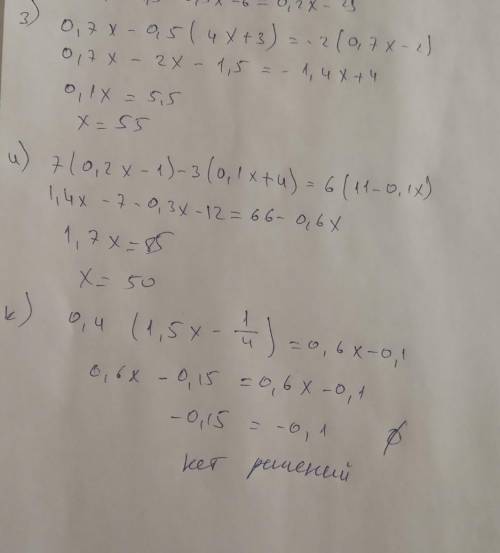 з) 0,7x - 0,5(4x+3) = -2(0,7x-2)
0,7x - 2x - 1,5 = -1,4x+4
0,1x = 5,5
x = 55
и) 7(0,2x-1)-3(0,1x+4) = 6(11-0,1x)
1,4x - 7 - 0,3x - 12 = 66 - 0,6x
1,7x = 85
x = 50
к) 0,4 (1,5x - 1/4) = 0,6x-0,1
0,6x - 0,15 = 0,6x - 0,1
-0,15 = -0,1 ∅
нет решений